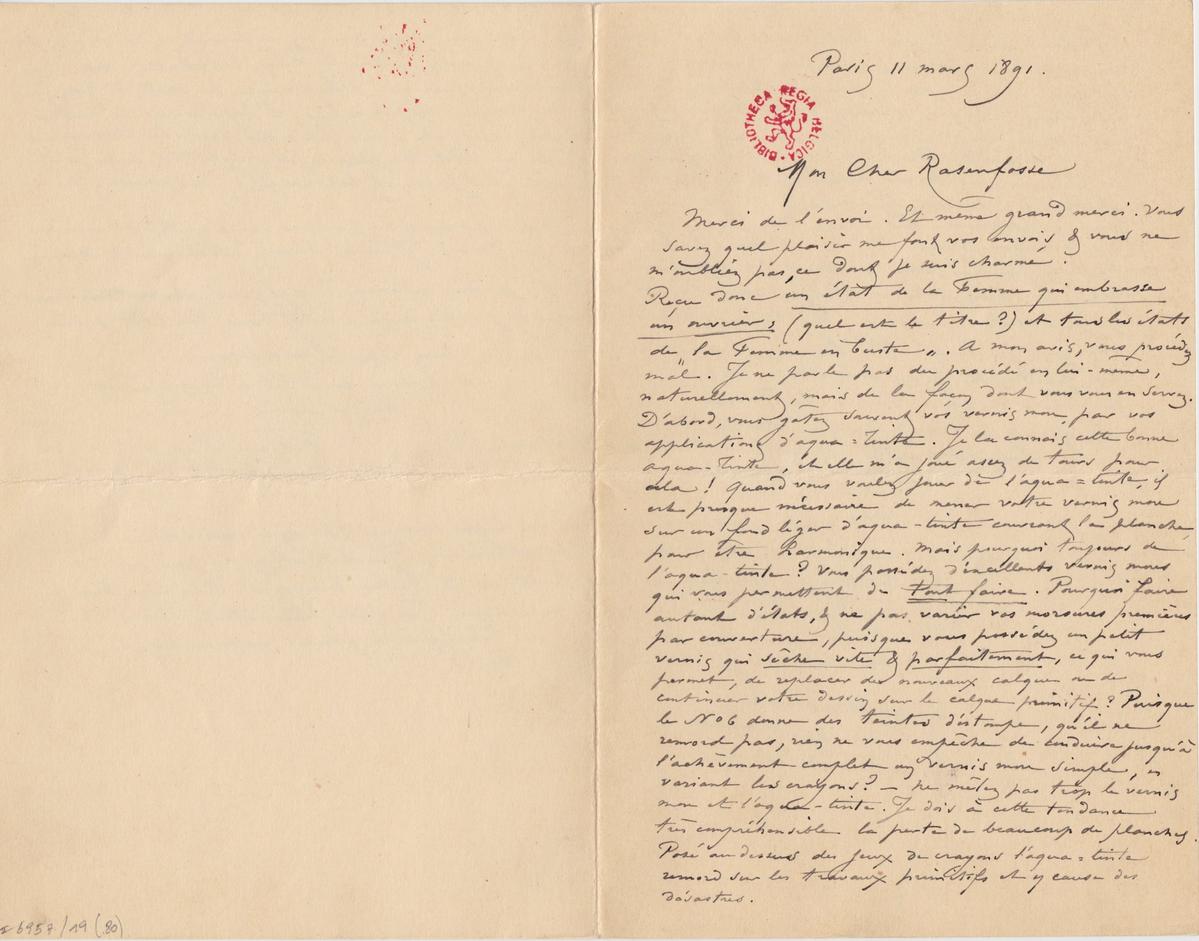 Paris 11 mars 1891.
BIBLIOTHECA REGIA BELGICA
Mon Cher Rasenfosse
Merci de l'envoi. Et même grand merci. Vous
savez quel plaisir me font vos envois & vous ne
m'oubliez pas, ce dont je suis charmé.
Reçu donc un état de la Femme qui embrasse
un ouvrier, (quel est le titre ?) et tous les états
de "la Femme en buste". A mon avis, vous procédez
mal. Je ne parle pas du procédé en lui-même,
naturellement, mais de la façon dont vous vous en servez.
D'abord, vous gâtez souvent vos vernis mou, par vos
applications d'aqua=tinte. Je la connais cette bonne
aqua-tinte, et elle m'a joué assez de tours pour
cela ! Quand vous voulez jouer de l'aqua=tinte, il
est presque nécessaire de mener votre vernis mou
sur un fond léger d'aqua-tinte couvrant la planche
pour être harmonique. Mais pourquoi toujours de
l'aqua-tinte ? Vous possédez d'excellents vernis mous
qui vous permettent de tout faire. Pourquoi faire
autant d'états, & ne pas varier vos morsures premières
par couverture, puisque vous possédez un petit
vernis qui sèche vite & parfaitement, ce qui vous
permet, de replacer des nouveaux calques ou de
continuer votre dessin sur le calque primitif ? Puisque
le No 6 donne des teintes d'estompe, qu'il ne
remord pas, rien ne vous empêche de conduire jusqu'à
l'achèvement complet un vernis mou simple, en
variant les crayons ? — ne mêlez pas trop le vernis
mou et l'aqua-tinte. Je dois à cette tendance
très compréhensible la perte de beaucoup de planches.
Posé au dessus des jeux de crayons l'aqua=tinte
remord sur les travaux primitifs et y cause des
désastres.
6957/19 (80)